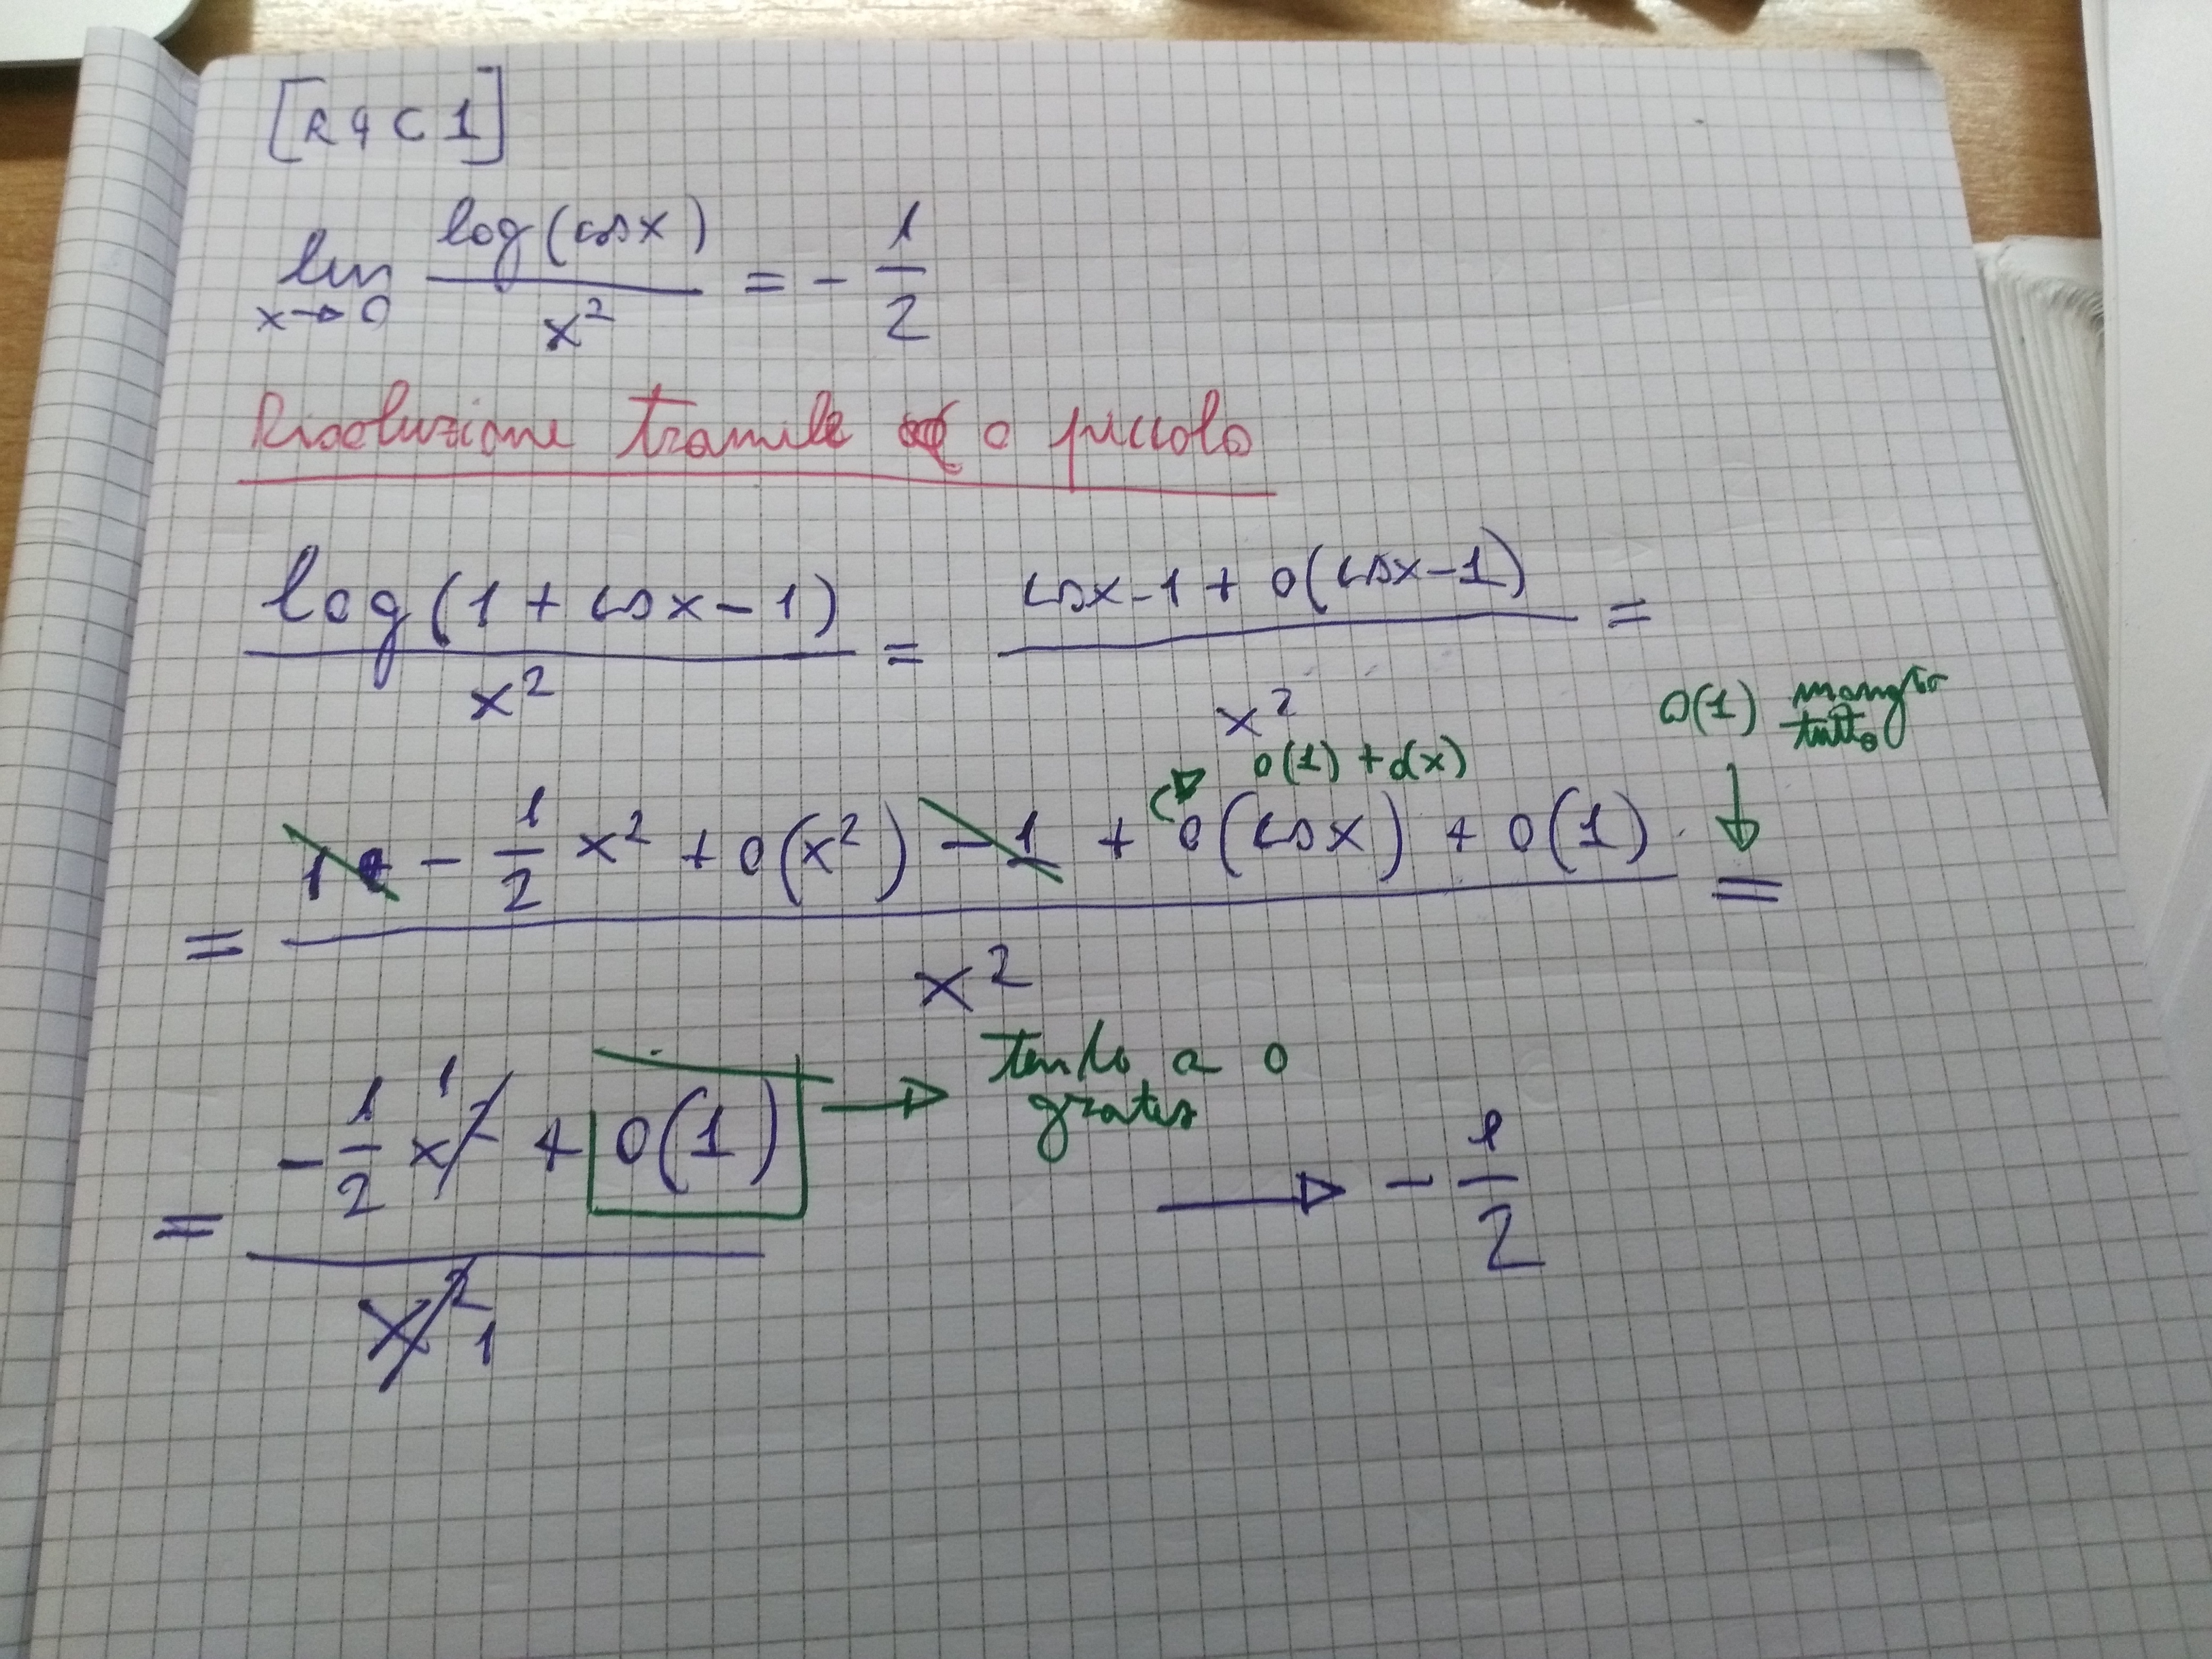 [R4C1]
lim x→0 log(cosx) / x² = - 1/2
Risoluzione tramite o piccolo
log(1+cosx-1) / x² = cosx-1 + o(cosx-1) / x² =
o(1) mangia tutto
o(1) + o(x)
= 1 - 1/2 x² + o(x²) - 1 + o(cosx) + o(1) / x² =
= - 1/2 x² + o(1) / x² → tende a 0 gratis
→ - 1/2